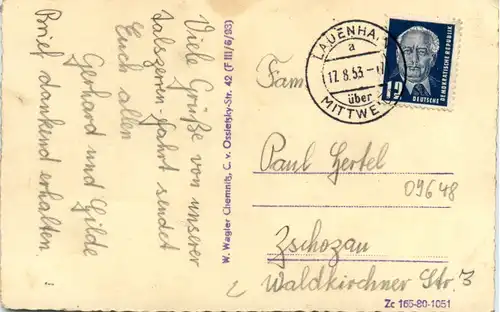 Viele Grüße von unserer
Talsperren-Fahrt sendet
Euch allen
Gerhard und Hilde
Brief dankend erhalten.
W. Wagler Chemnitz, C. v. Ossietzky-Str. 42 (F III/6/83)
LAUENHA
a
17.8.53
über
MITTWE
12
DEUTSCHE
DEMOKRATISCHE REPUBLIK
Fam.
Paul Hertel
09648
Zschopau
Waldkirchner Str. 3
Zc 165-80-1051